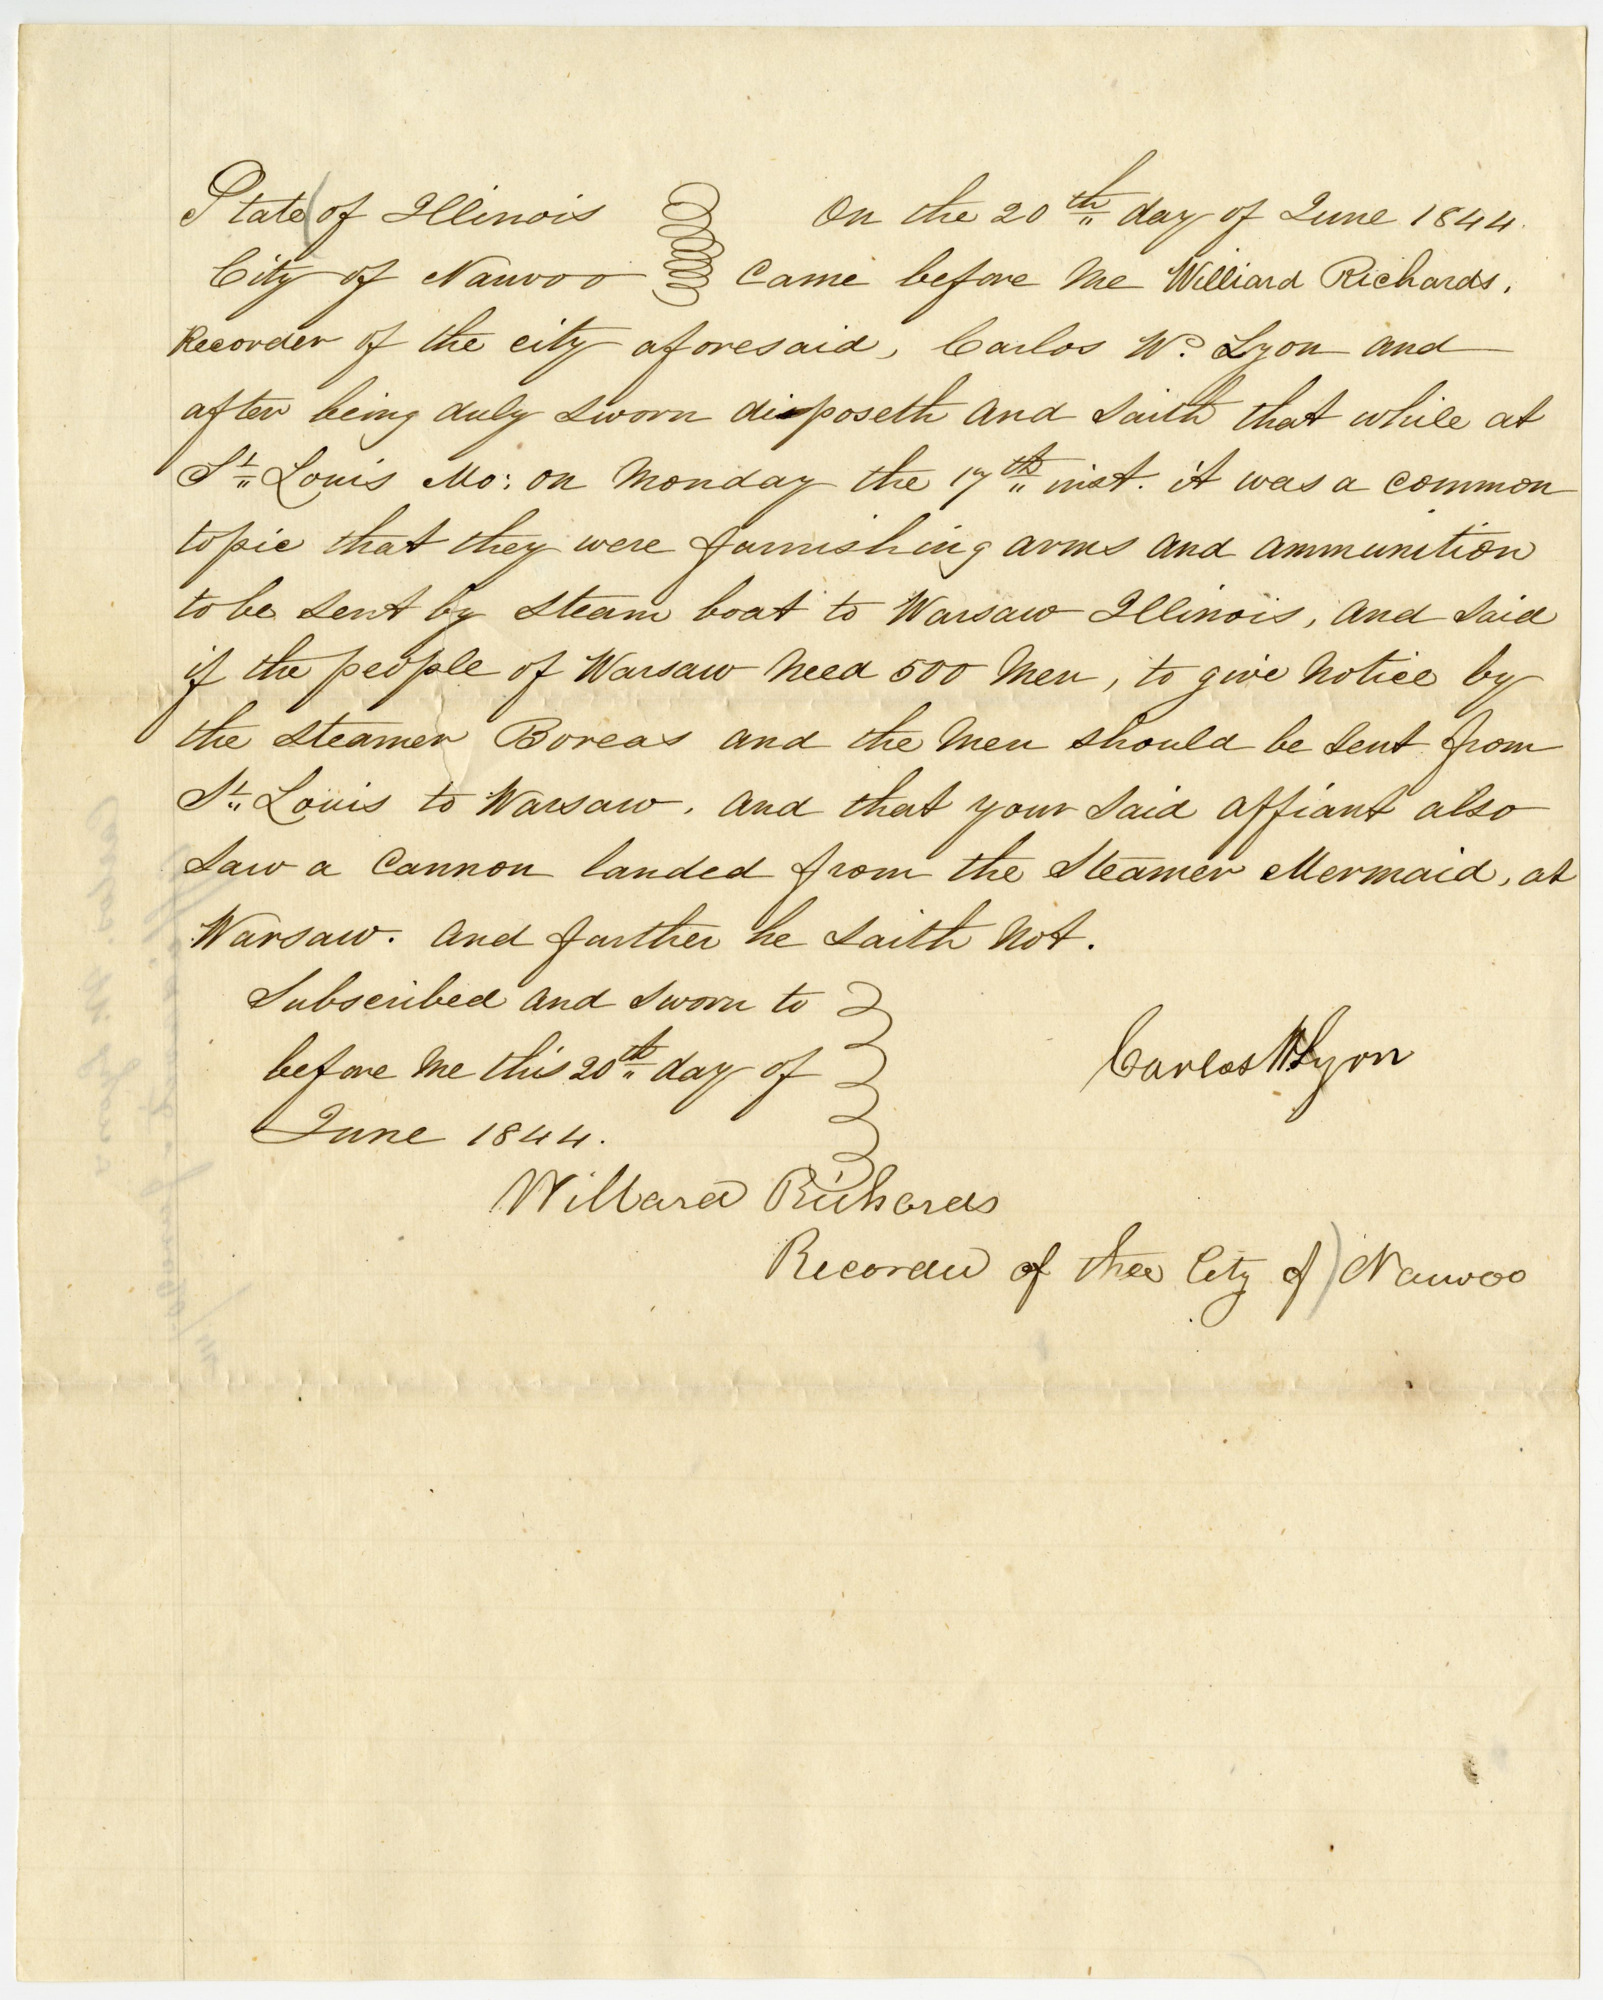 State of Illinois On the 20th day of June 1844.
City of Nauvoo came before me Williard Richards,
Recorder of the city aforesaid, Carlos W. Lyon and
after being duly sworn disposeth and saith that while at
St. Louis Mo: on Monday the 17th inst. it was a common
topic that they were furnishing arms and ammunition
to be sent by steam boat to Warsaw Illinois, and said
if the people of Warsaw need 500 men, to give notice by
the steamer Boreas and the men should be sent from
St. Louis to Warsaw. and that your said affiant also
saw a cannon landed from the steamer Mermaid, at
Warsaw. and further he saith not.
Subscribed and sworn to
before me this 20th day of
June 1844.
Carlos W Lyon
Willard Richards
Recorder of thee City of Nauvoo